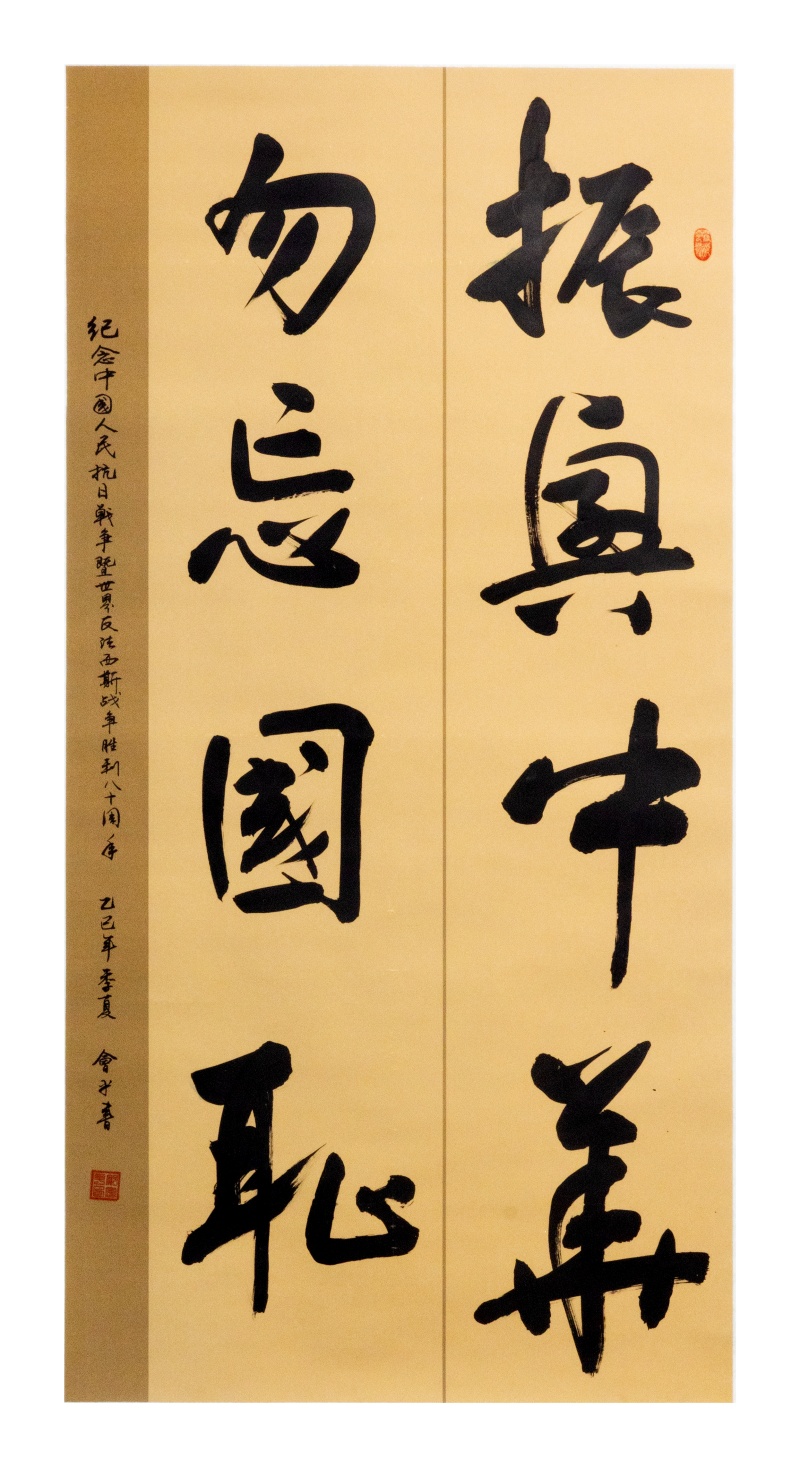 振興中華
勿忘國恥
纪念中國人民抗日戰争暨世界反法西斯战争胜利八十周年 乙巳年季夏 會平書